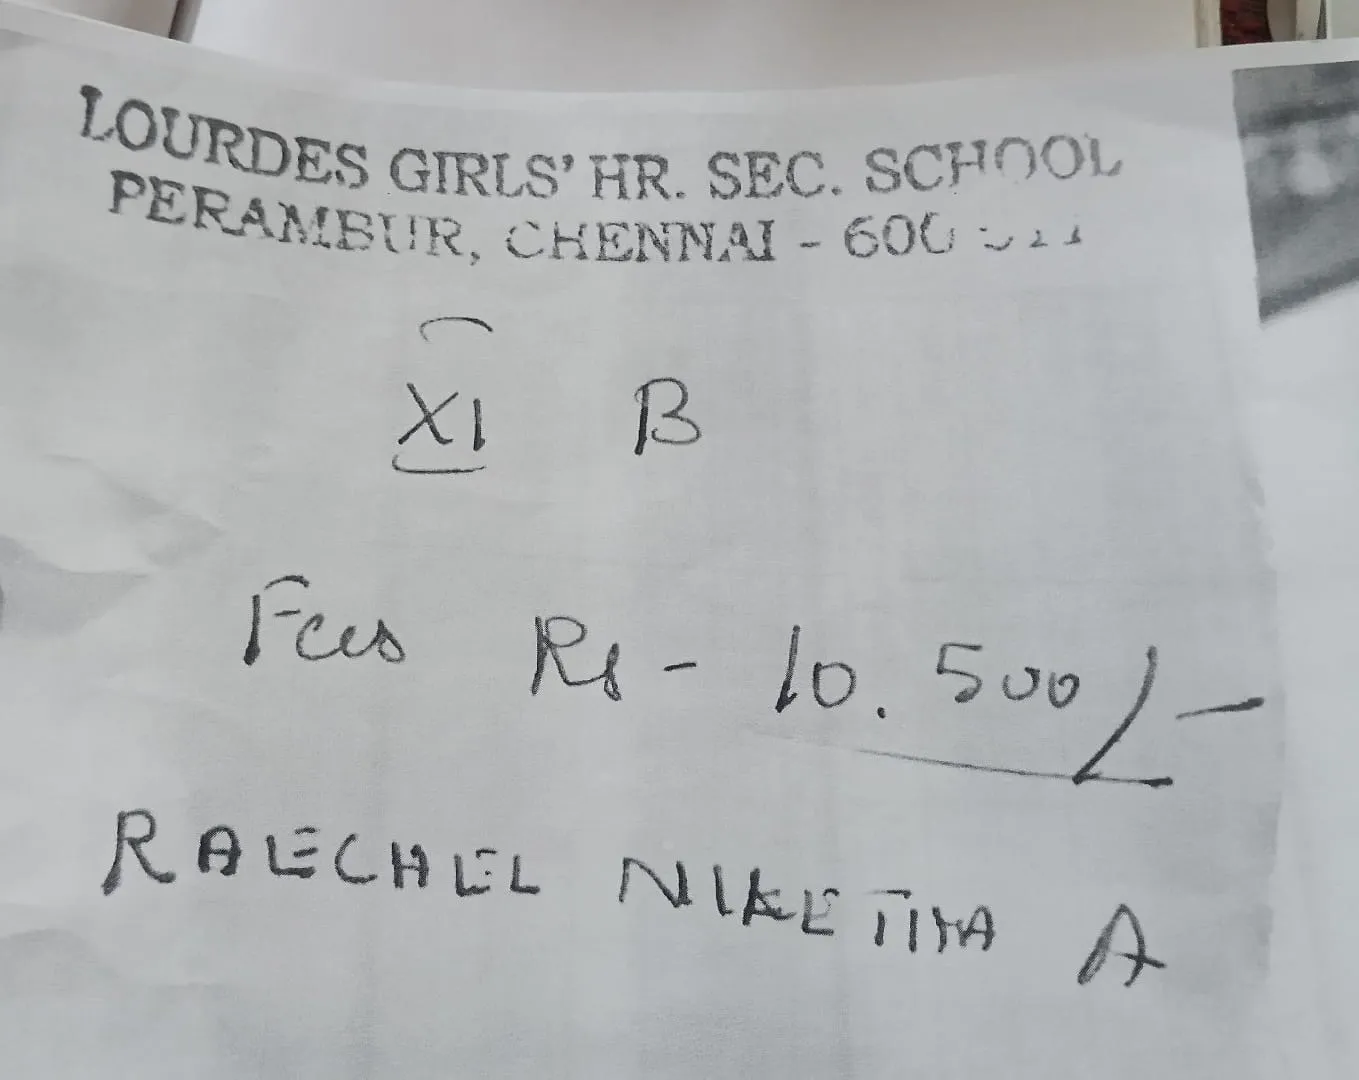 LOURDES GIRLS' HR. SEC. SCHOOL
PERAMBUR, CHENNAI - 600
XI B
Fees Rs - 10.500/-
RAECHEL NIKETIYA A